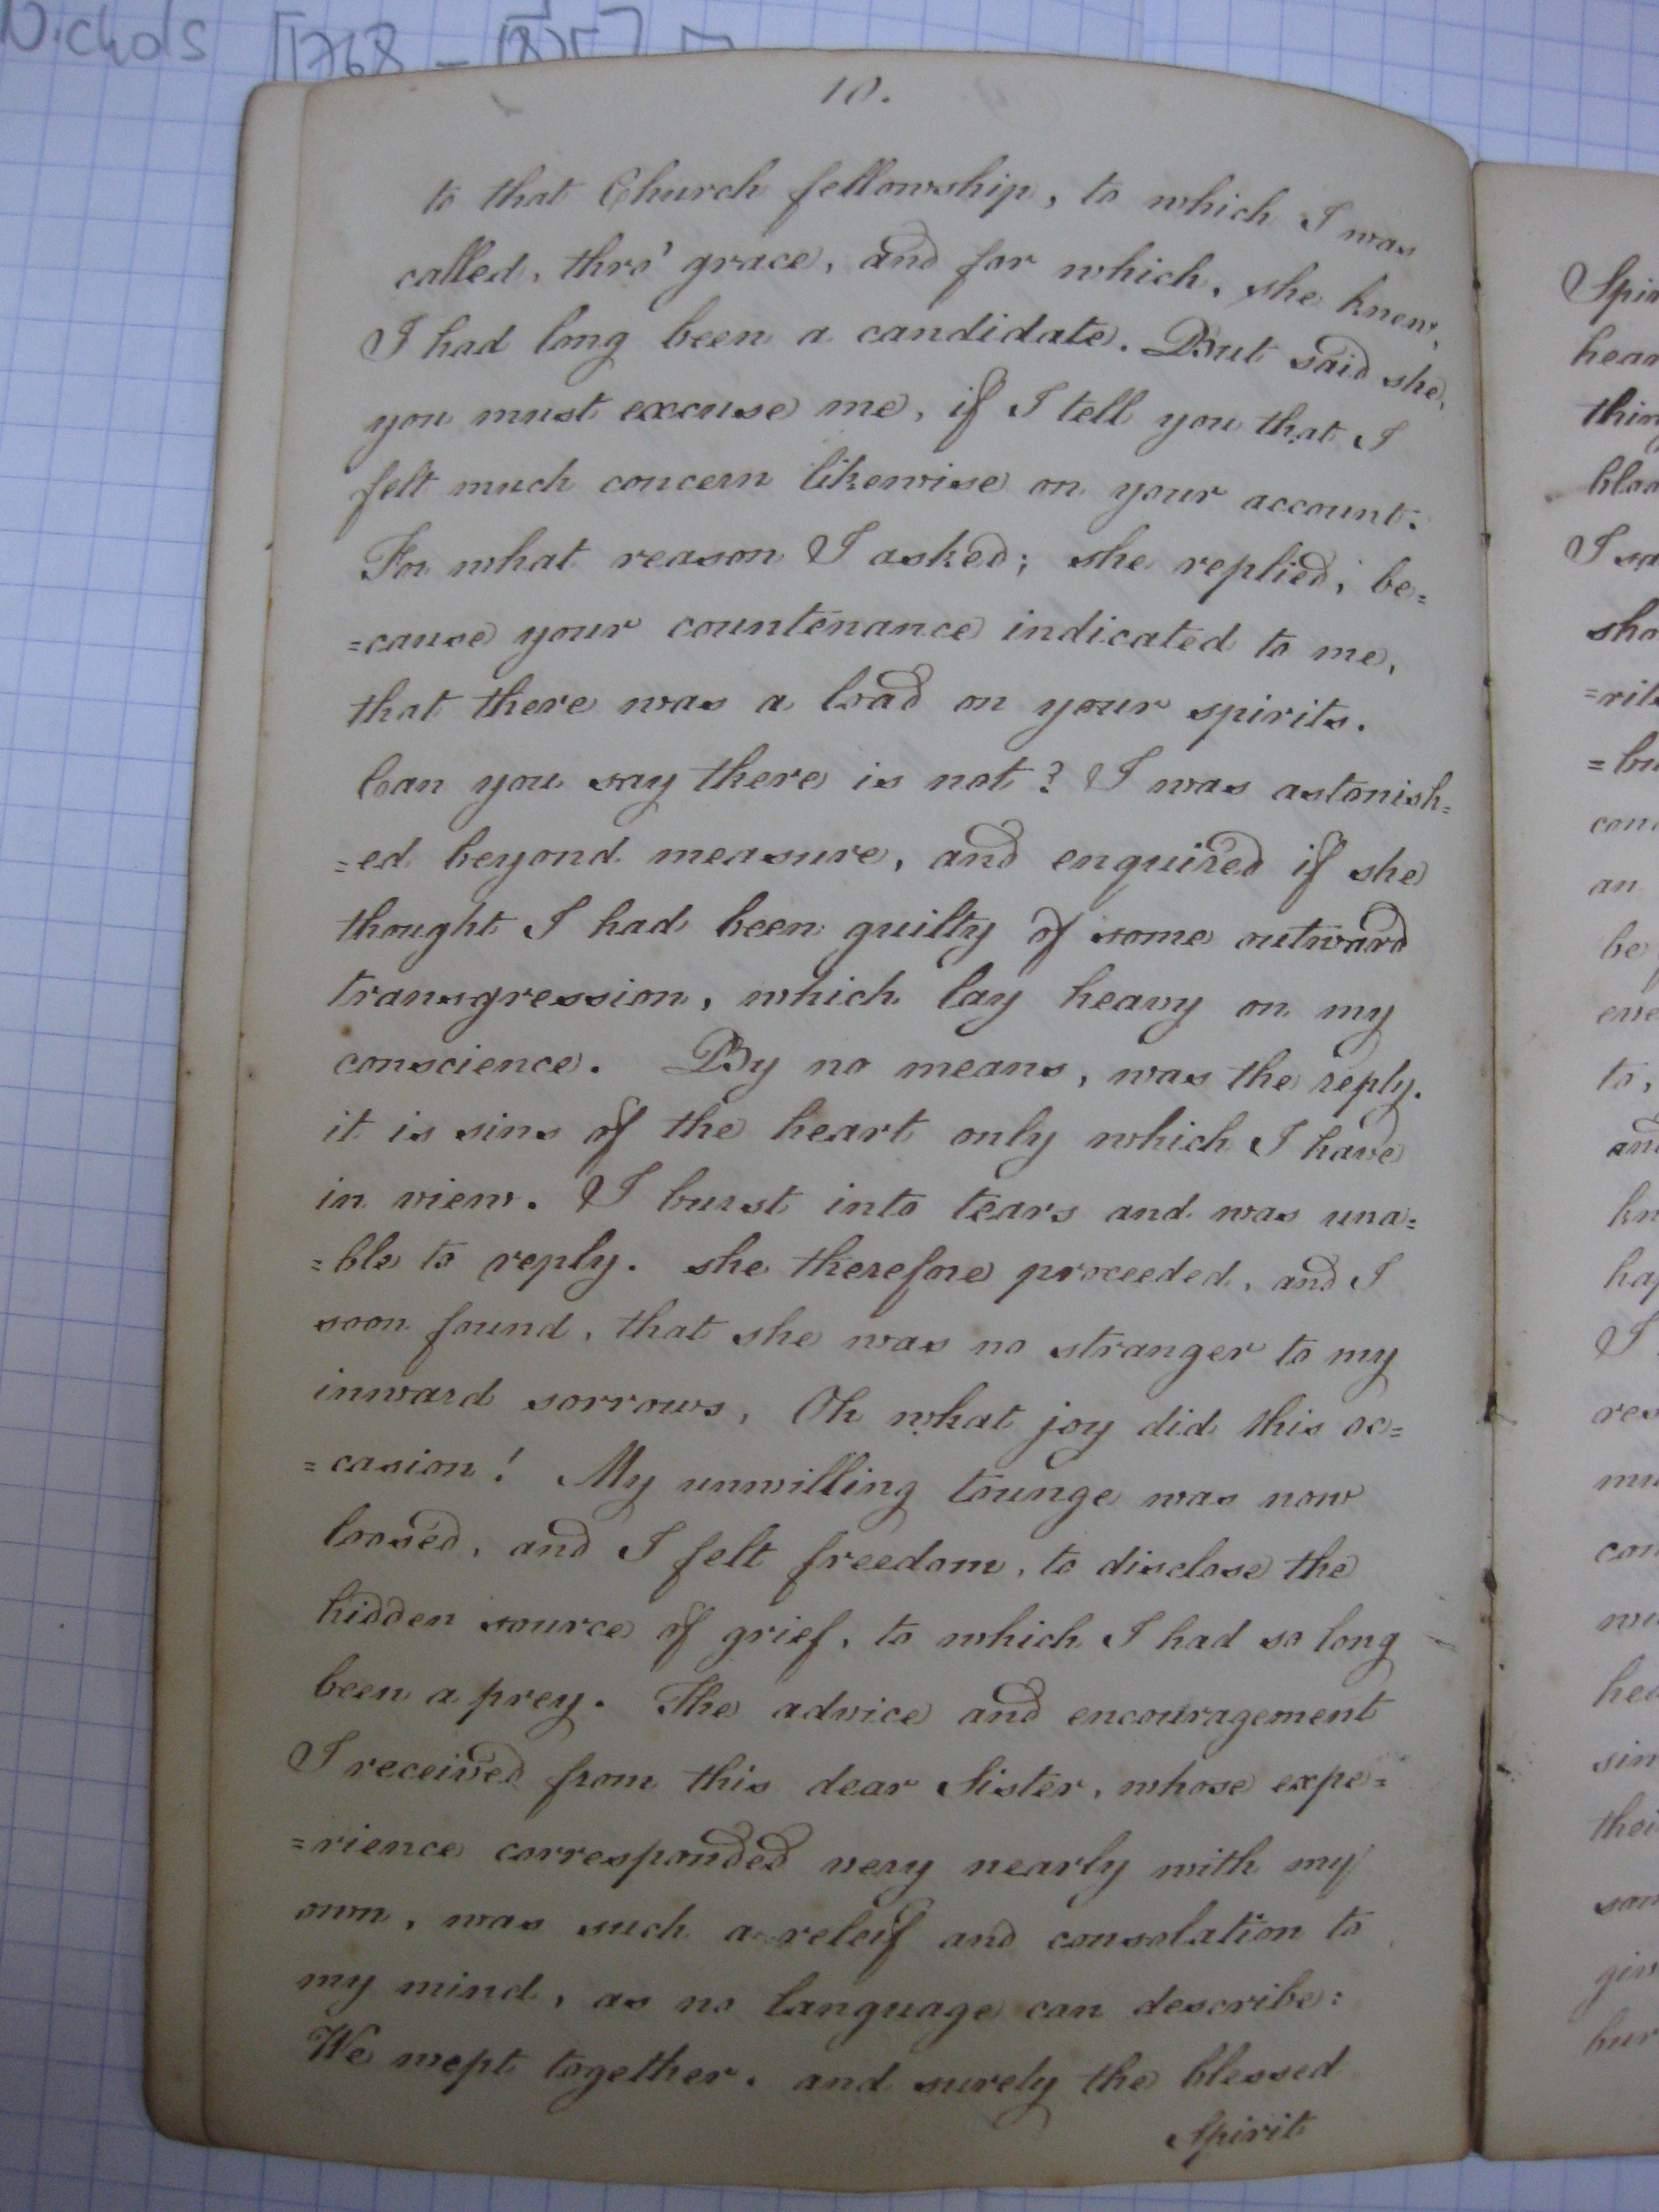 Nichols [1768 - 18
10.
to that Church fellowship, to which I was
called, thro' grace, and for which, she knew,
I had long been a candidate. But said she,
you must excuse me, if I tell you that I
felt much concern likewise on your account.
For what reason I asked; she replied, be=
=cause your countenance indicated to me,
that there was a load on your spirits.
Can you say there is not? I was astonish=
=ed beyond measure, and enquired if she
thought I had been guilty of some outward
transgression, which lay heavy on my
conscience. By no means, was the reply.
it is sins of the heart only which I have
in view. I burst into tears and was una=
=ble to reply. she therefore proceeded, and I
soon found, that she was no stranger to my
inward sorrows, Oh what joy did this oc=
=casion! My unwilling tounge was now
loosed, and I felt freedom, to disclose the
hidden source of grief, to which I had so long
been a prey. The advice and encouragement
I received from this dear Sister, whose expe=
=rience corresponded very nearly with my
own, was such a releif and consolation to
my mind, as no language can describe:
We wept together. and surely the blessed
Spirit